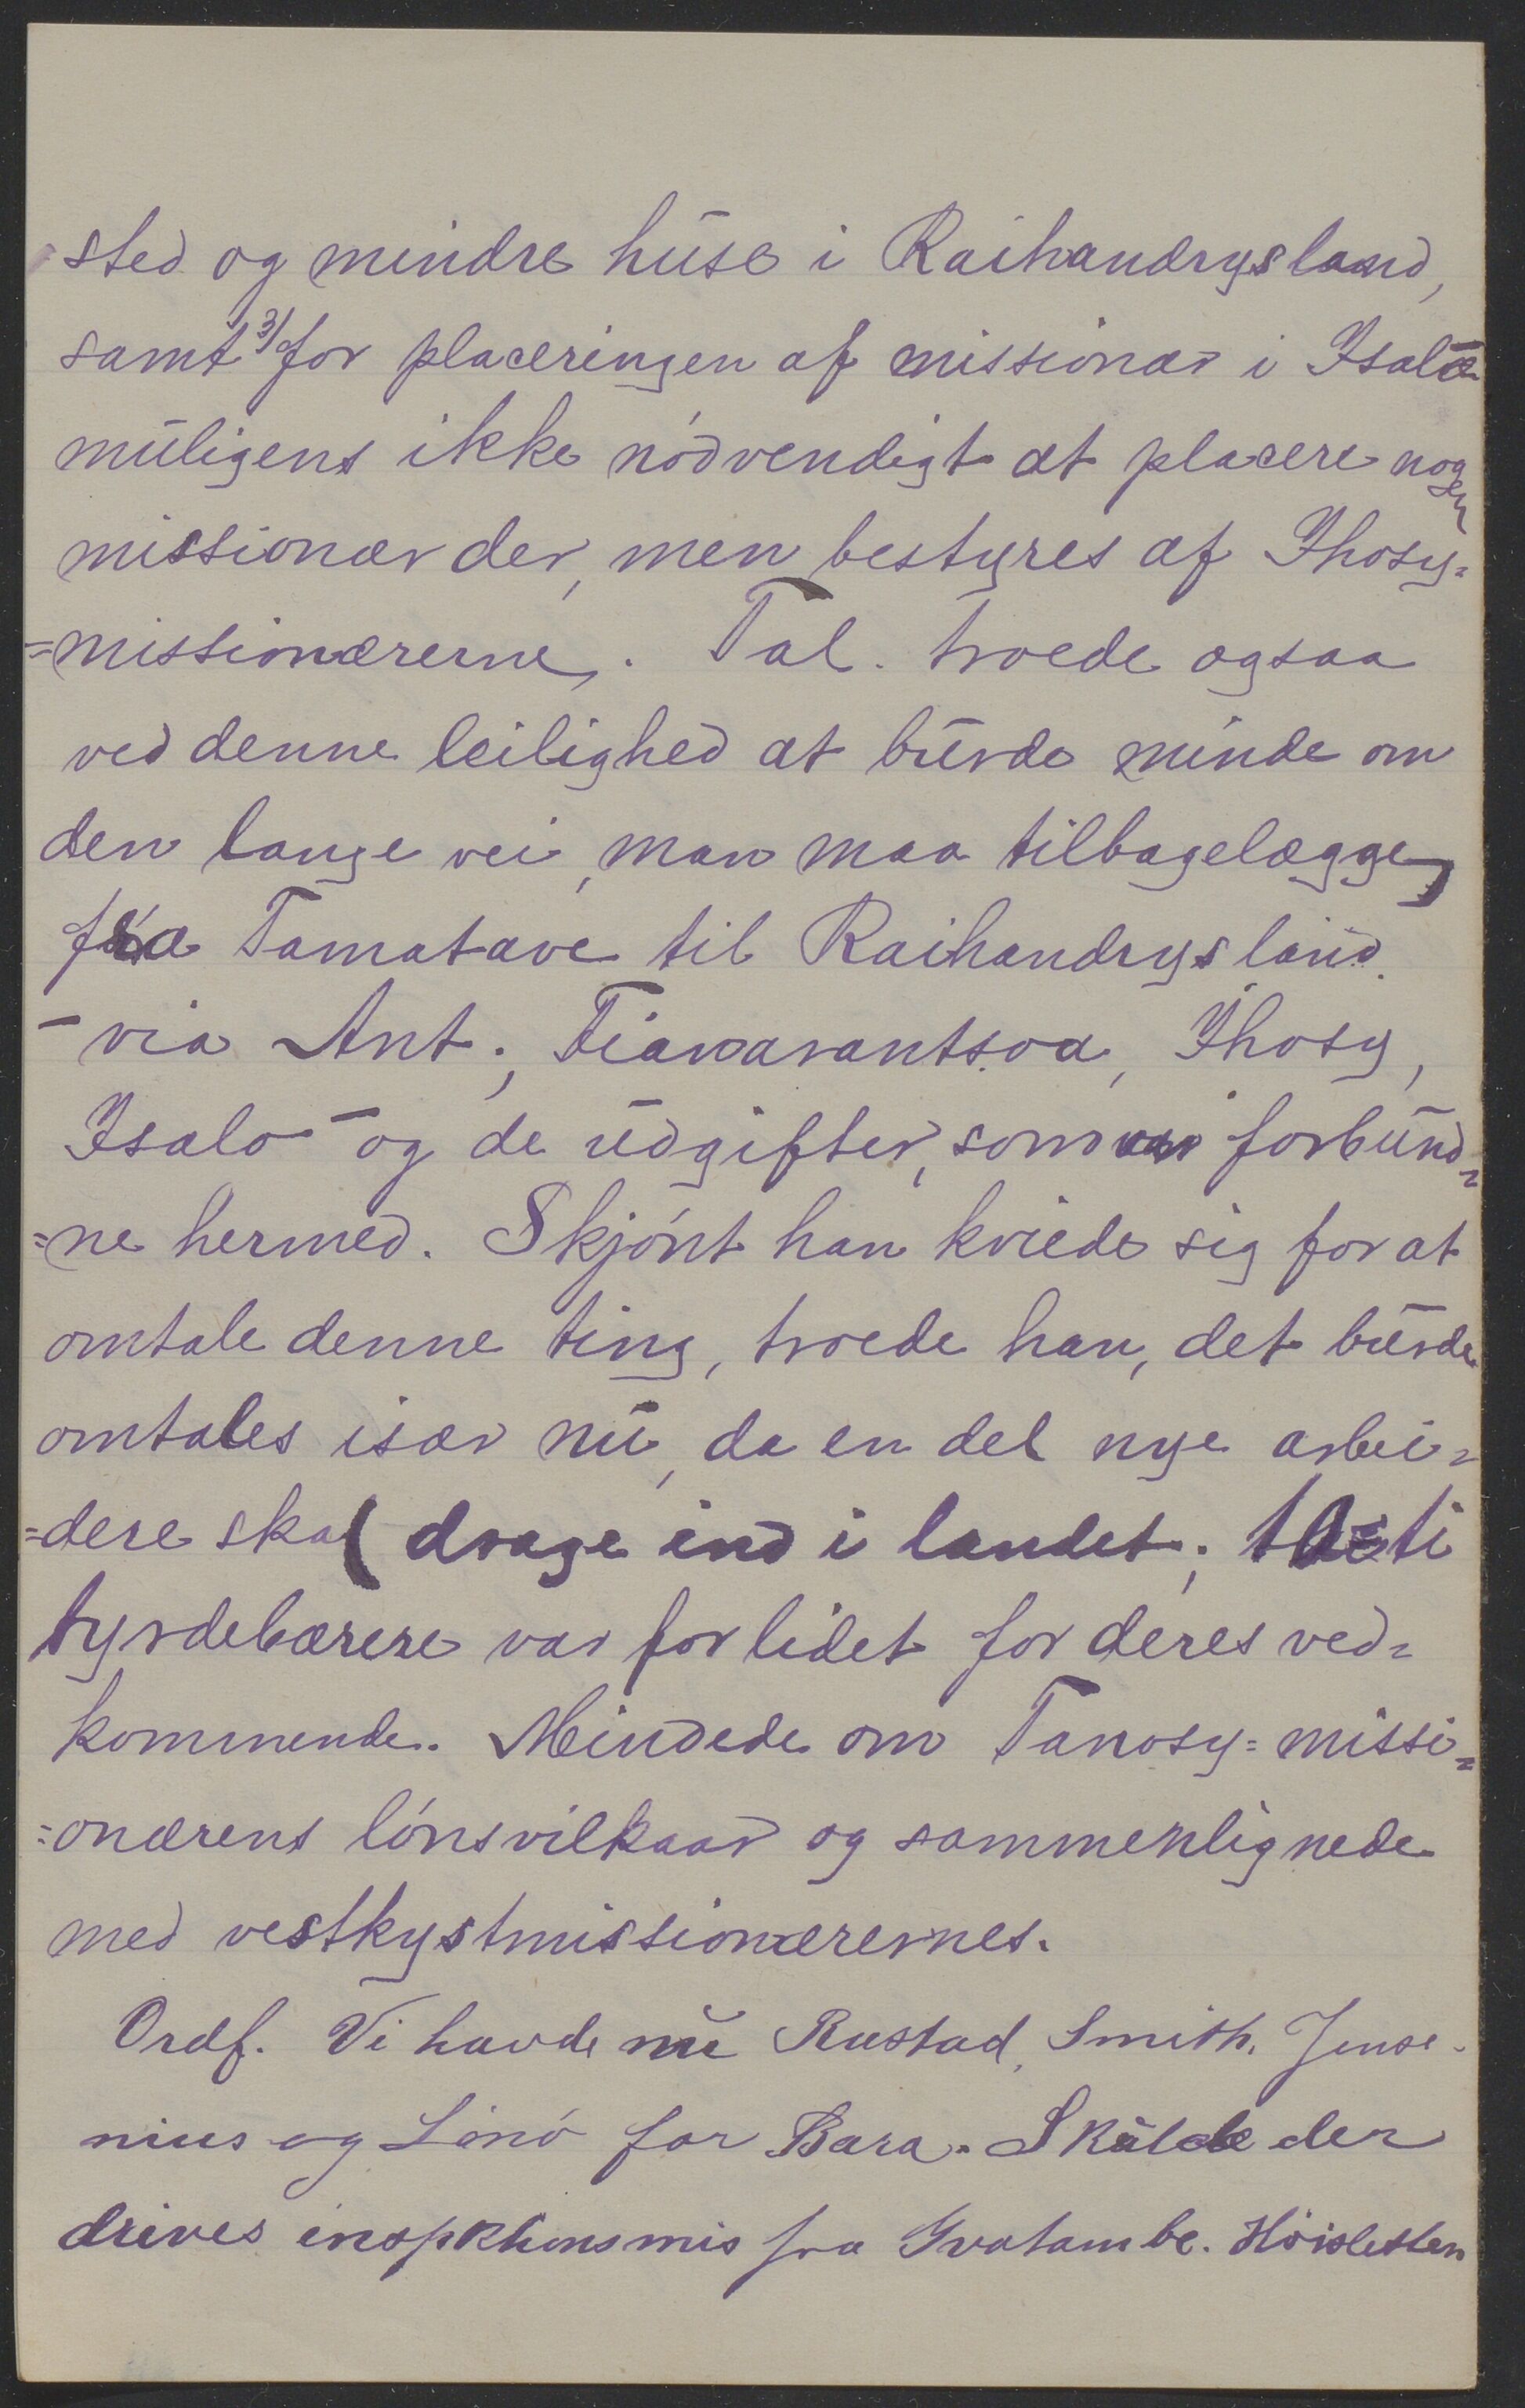 sted og mindre huse i Raihandrys land,
samt 3/ for placeringen af missionær i Isalo
muligens ikke nödvendigt at placere nogen
missionær der, men bestyres af Ihosy=
=missionærerne. Tal. troede ogsaa
ved denne leilighed at burde minde om
den lange vei, man maa tilbagelægge,
fra Tamatave til Raihandrys land
- via Ant., Fianarantsoa, Ihosy,
Isalo - og de udgifter, som var forbund=
=ne hermed. Skjönt han kviede sig for at
omtale denne ting, troede han, det burde
omtales især nu, da en del nye arbei=
=dere skal drage ind i landet; ti
byrdebærere var for lidet for deres ved=
kommende. Mindede om Tanosy=missi=
=onærens lönsvilkaar og sammenlignede
med vestkystmissionærernes.
Ordf. Vi havde nu Rustad, Smith, Jense-
nius og Linö for Bara. Skulde der
drives fra Ivatambe. Höisletten